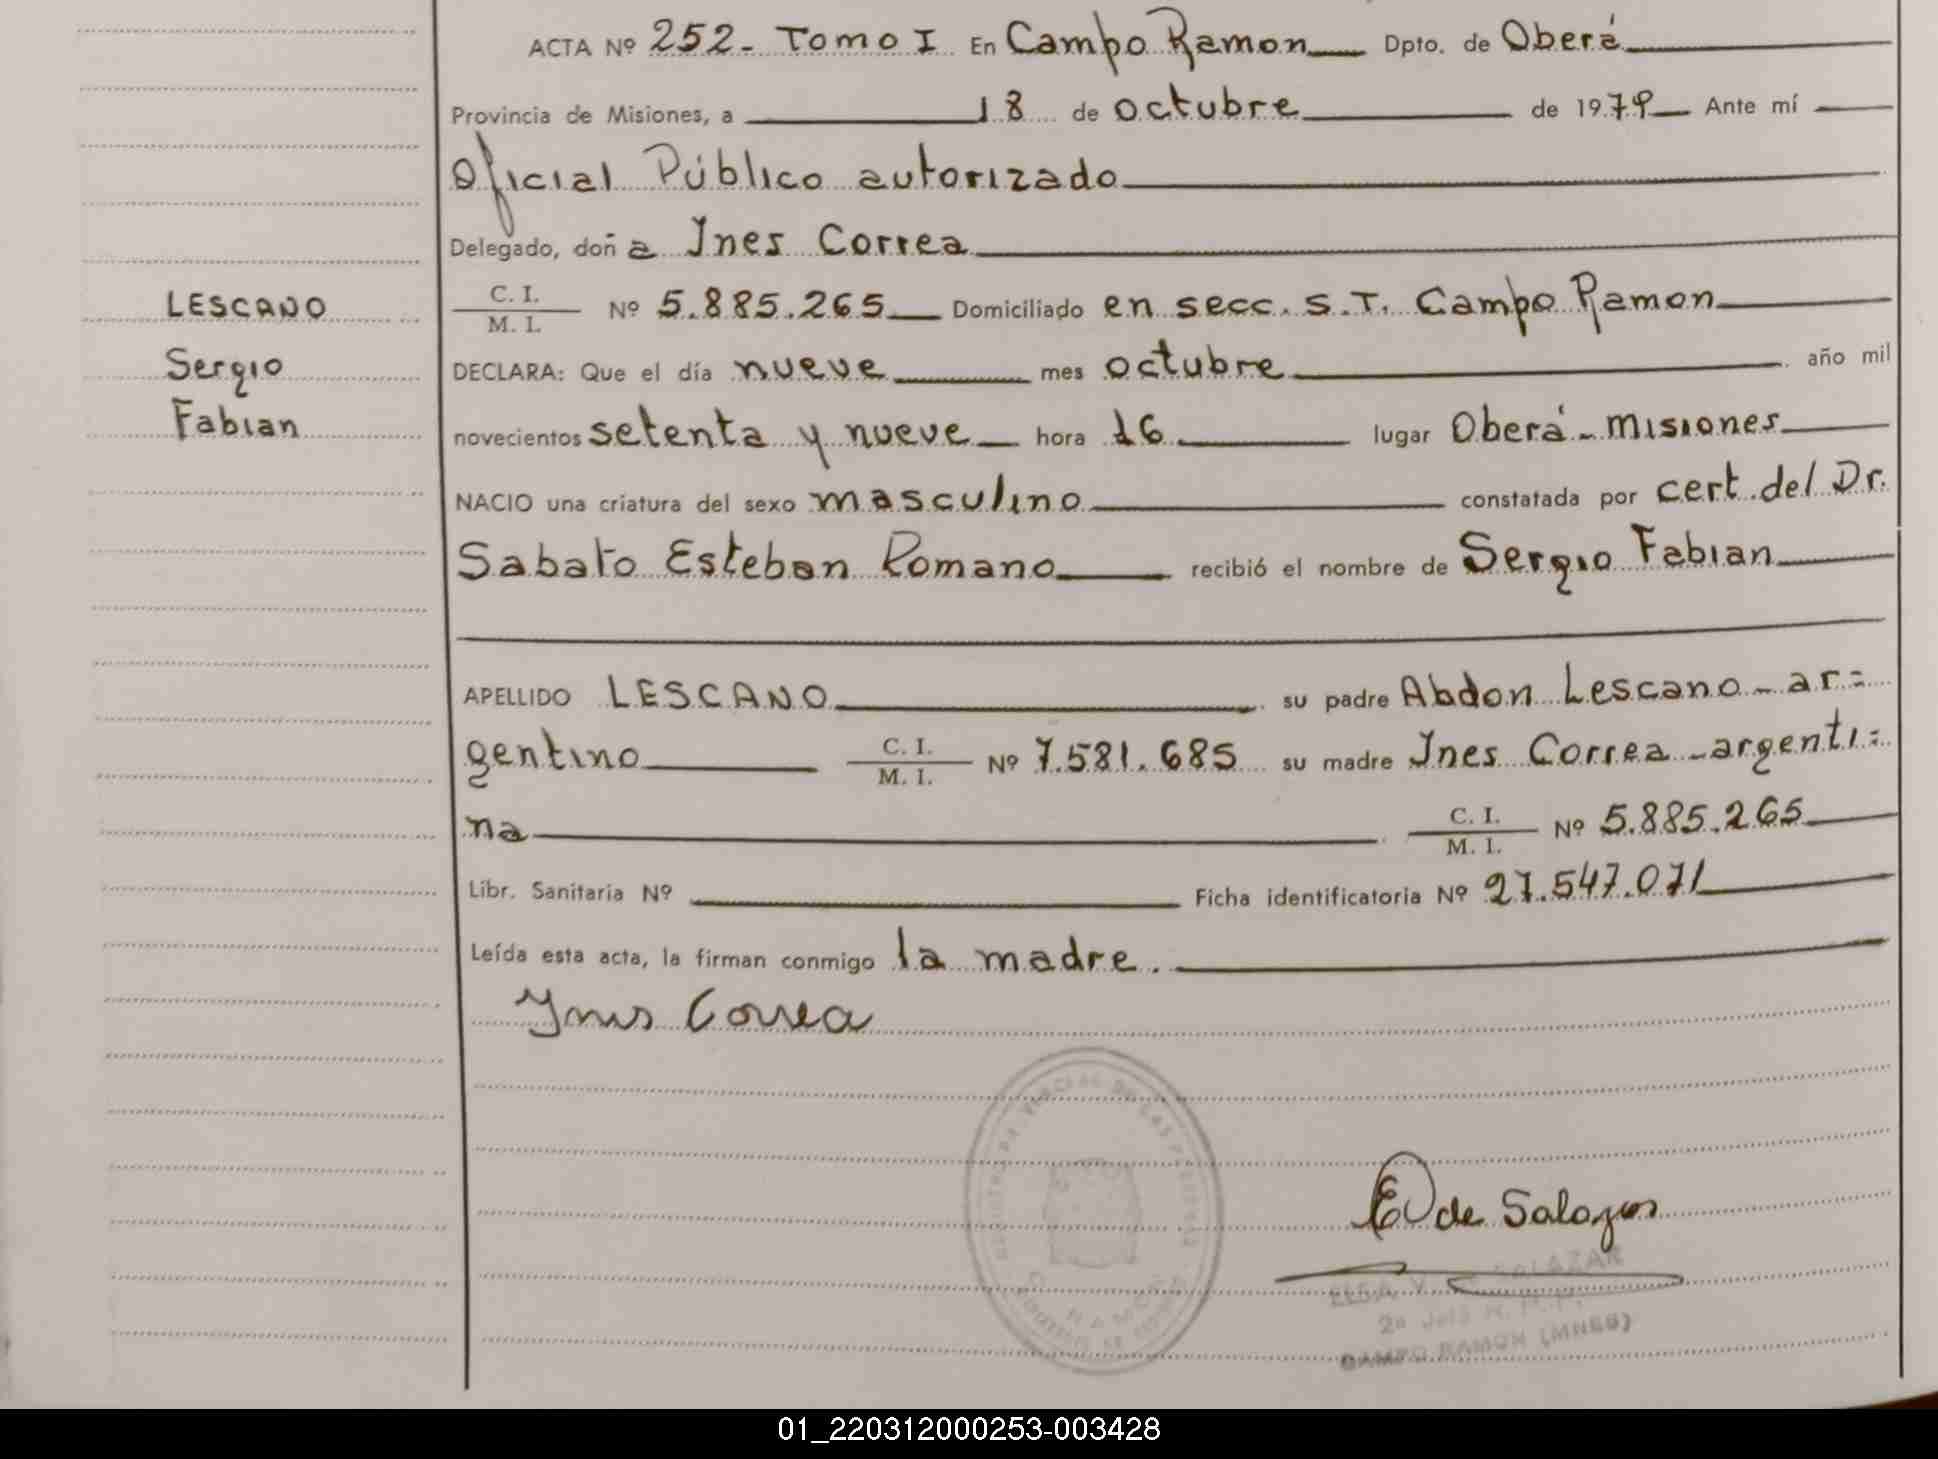 ACTA Nº 252- Tomo I En Campo Ramon Dpto. de Oberá
Provincia de Misiones, a 18 de octubre de 1979 Ante mí
Oficial Público autorizado
Delegado, doña Ines Correa
C. I.
M. I. Nº 5.885.265 Domiciliado en secc. S.T. Campo Ramon
LESCANO
Sergio
Fabian
DECLARA: Que el día nueve mes octubre año mil
novecientos setenta y nueve hora 16 lugar Oberá - Misiones
NACIO una criatura del sexo masculino constatada por cert. del Dr.
Sabato Esteban Romano recibió el nombre de Sergio Fabian
APELLIDO LESCANO su padre Abdon Lescano - ar=
gentino C. I. M. I. Nº 7.581.685 su madre Ines Correa - argenti=
na C. I. M. I. Nº 5.885.265
Libr. Sanitaria Nº Ficha identificatoria Nº 27.547.071
Leída esta acta, la firman conmigo la madre.
Ynes Correa
E de Salazar
ELSA V. SALAZAR
CAMPO RAMON (MNES)
01_220312000253-003428